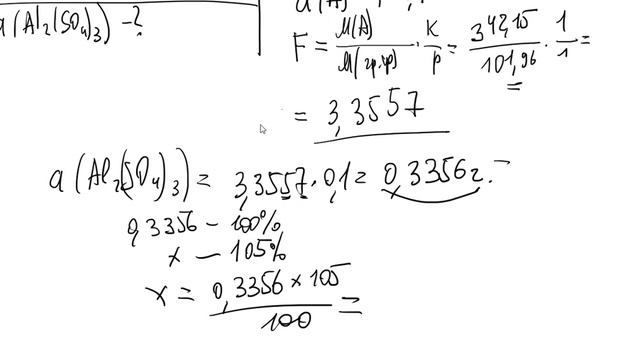 a(Al₂(SO₄)₃) - ?
F = M(A)/M(гр.ф) · K/P = 342,15/101,96 · 1/1 =
= 3,3557
a(Al₂(SO₄)₃) = 3,3557 · 0,1 = 0,3356 г.
0,3356 – 100%
x – 105%
x = 0,3356 × 105/100 =